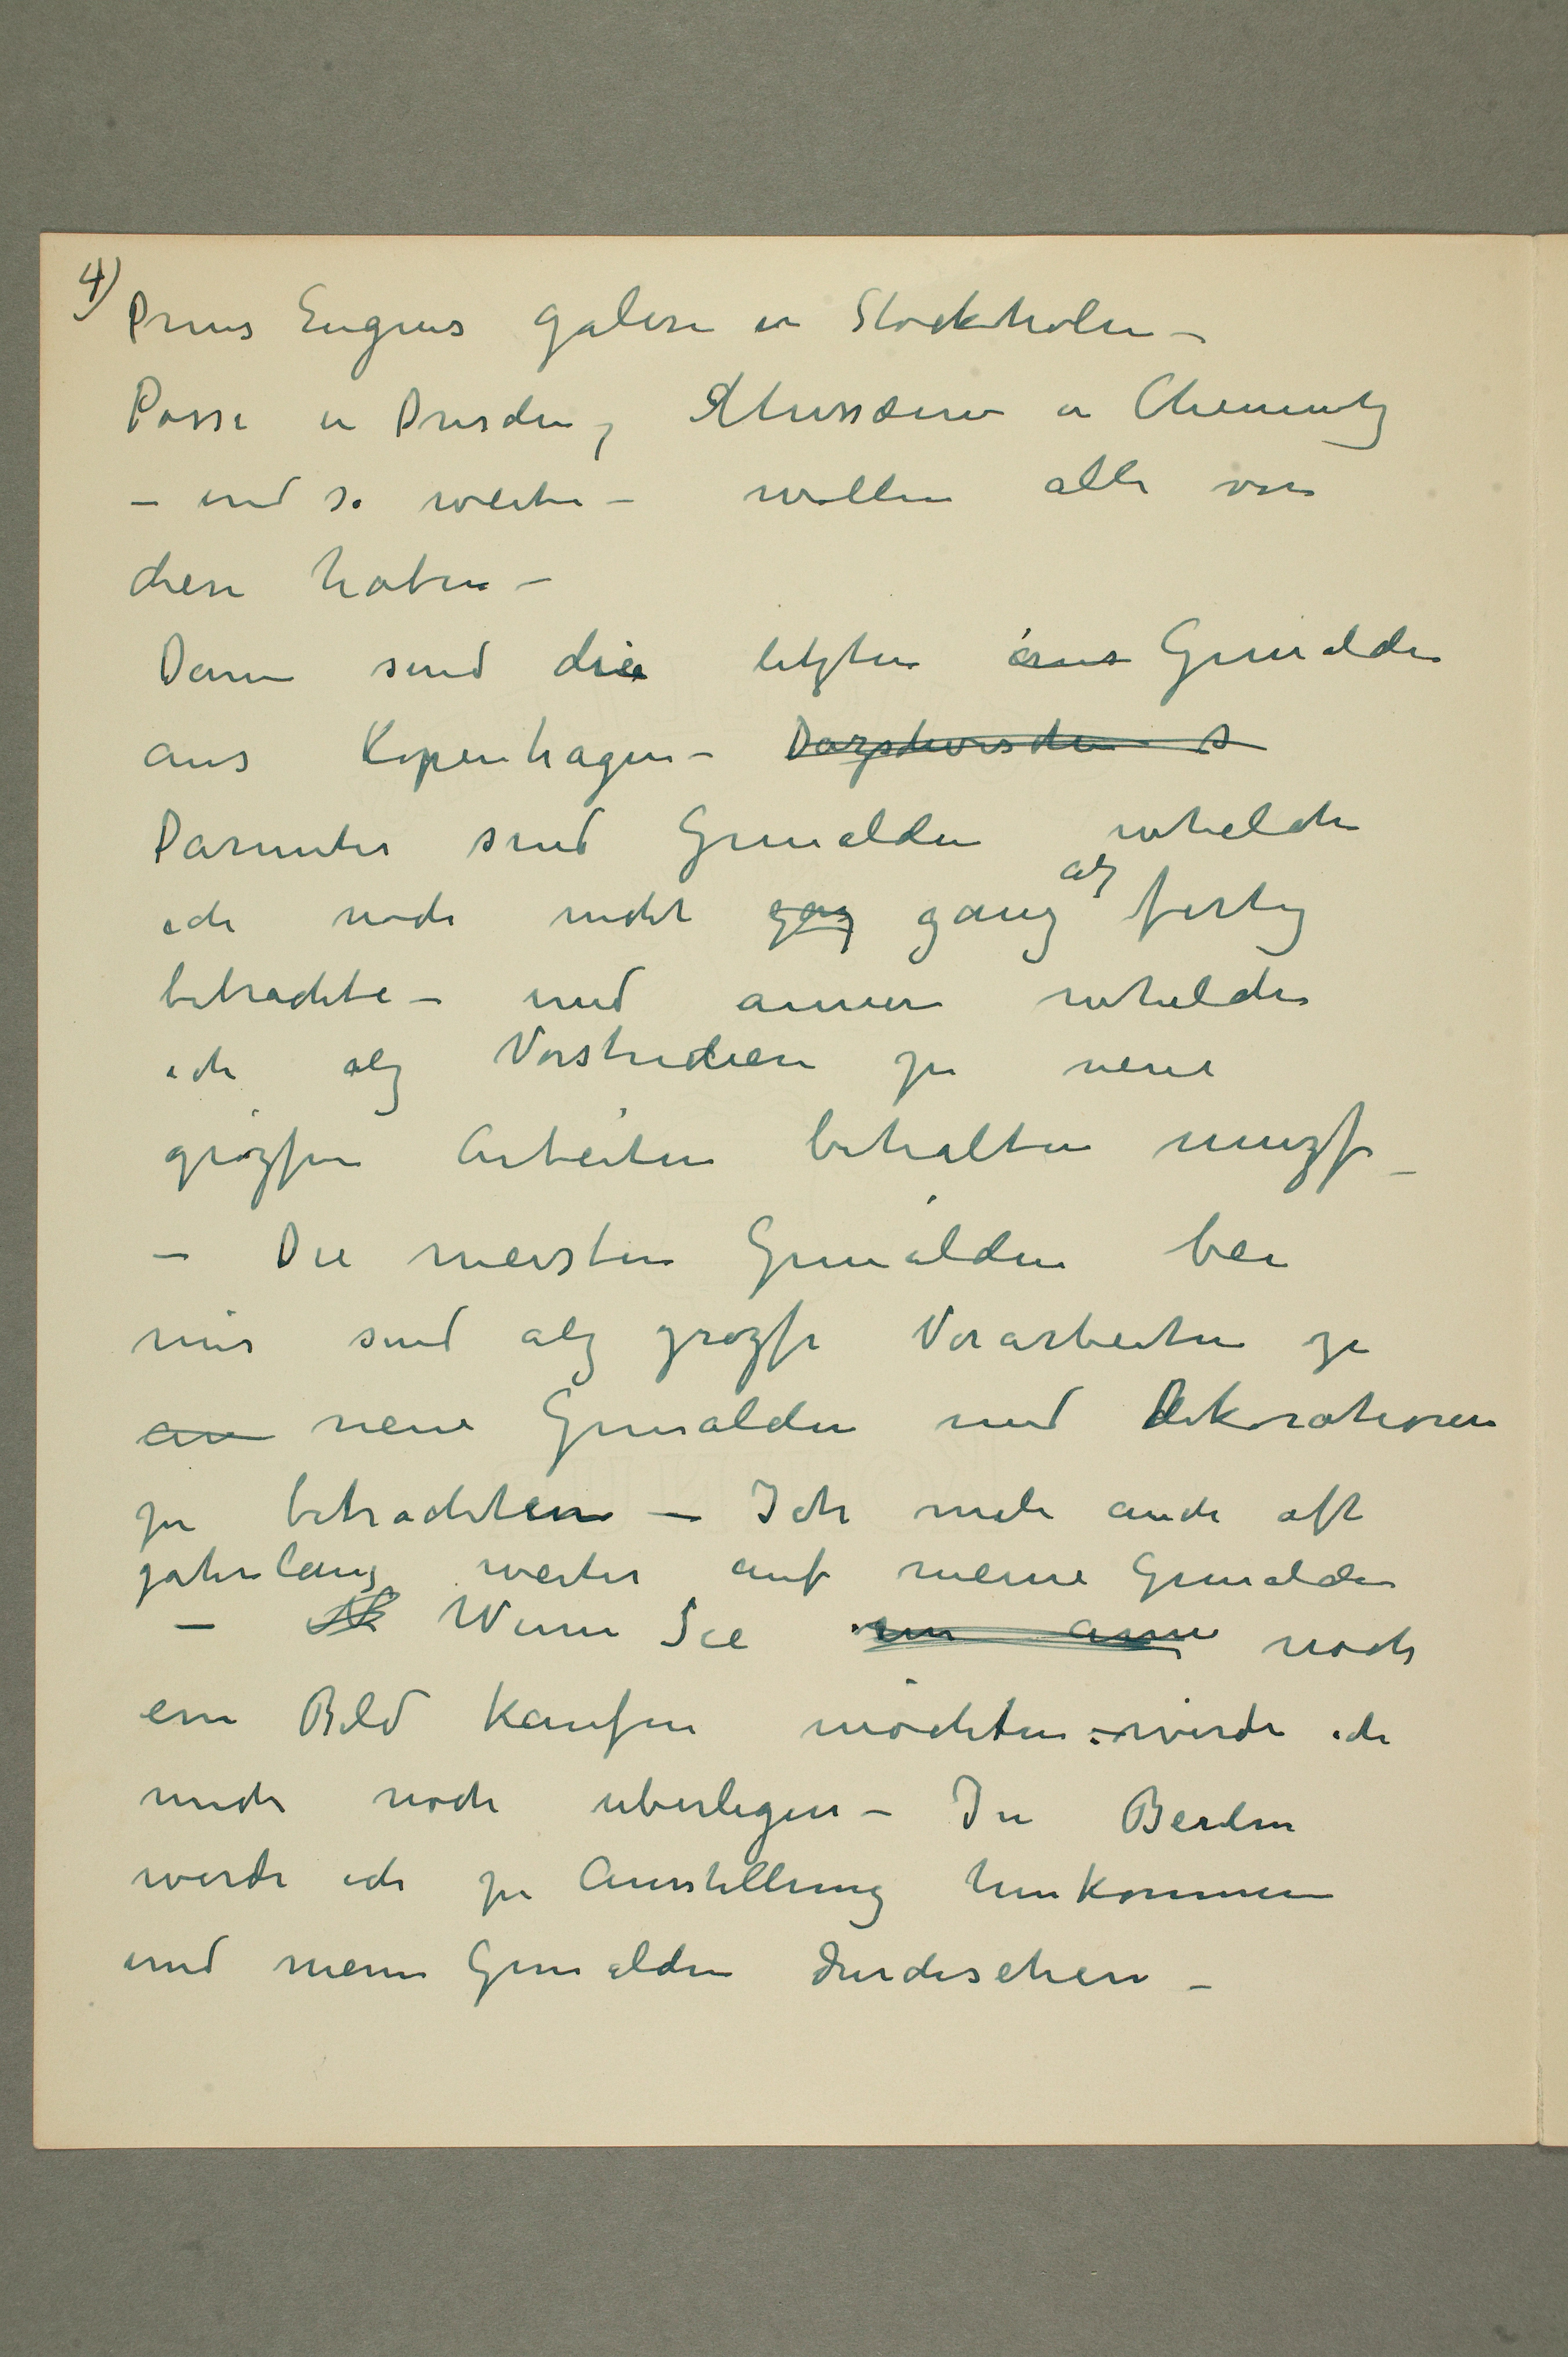 4)
Prins Eugens Galeri in Stockholm –
Posse in Dresden, Mussæum in Chemnitz
– und so weiter – wollen alle von
diesen haben –
Dann sind die letzten aus Gemälden
aus Kopenhagen – Dazschwischen s
Darunter sind Gemälden whelche
ich noch nicht gaz ganz alz fertig
betrachte – und annere whelche
ich alz Vorstudien zu neue
grözfen Arbeiten behalten muzf –
– Die meisten Gemälden bei
mir sind alz grozfe Vorarbeiten zu
an neue Gemälden und Dekorationen
zu betrachten – Ich mele auch oft
jahrelang weiter auf meine Gemälden
– Wenn Sie ein anne noch
ein Bild kaufen möchten – werde ich
mich noch uberlegen – In Berlin
werde ich zu Ausstellung hinkommen
und meine Gemälden durchsehen –